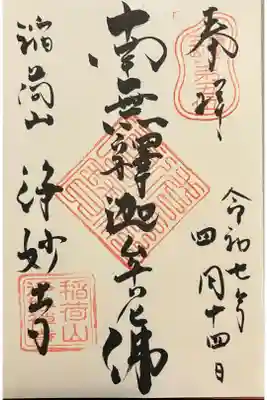 奉拝
令和七年
四月十四日
南無釋迦牟尼佛
稲荷山 浄妙寺
稲荷山